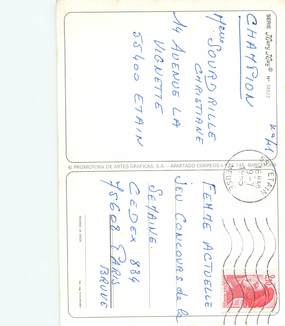 SERIE Juny Juny ®
CHAMPION
Mme SOURDRILLE
CHRISTIANE
14 AVENUE LA
VIGNETTE
55400 ETAIN
© PROMOTORA DE ARTES GRAFICAS, S.A. - APARTADO CORREOS
FEMME ACTUELLE
JEU CONCOURS de la
SEMAINE.
CEDEX 834
75608 PARIS
BRUNE
ETAIN
MEUSE